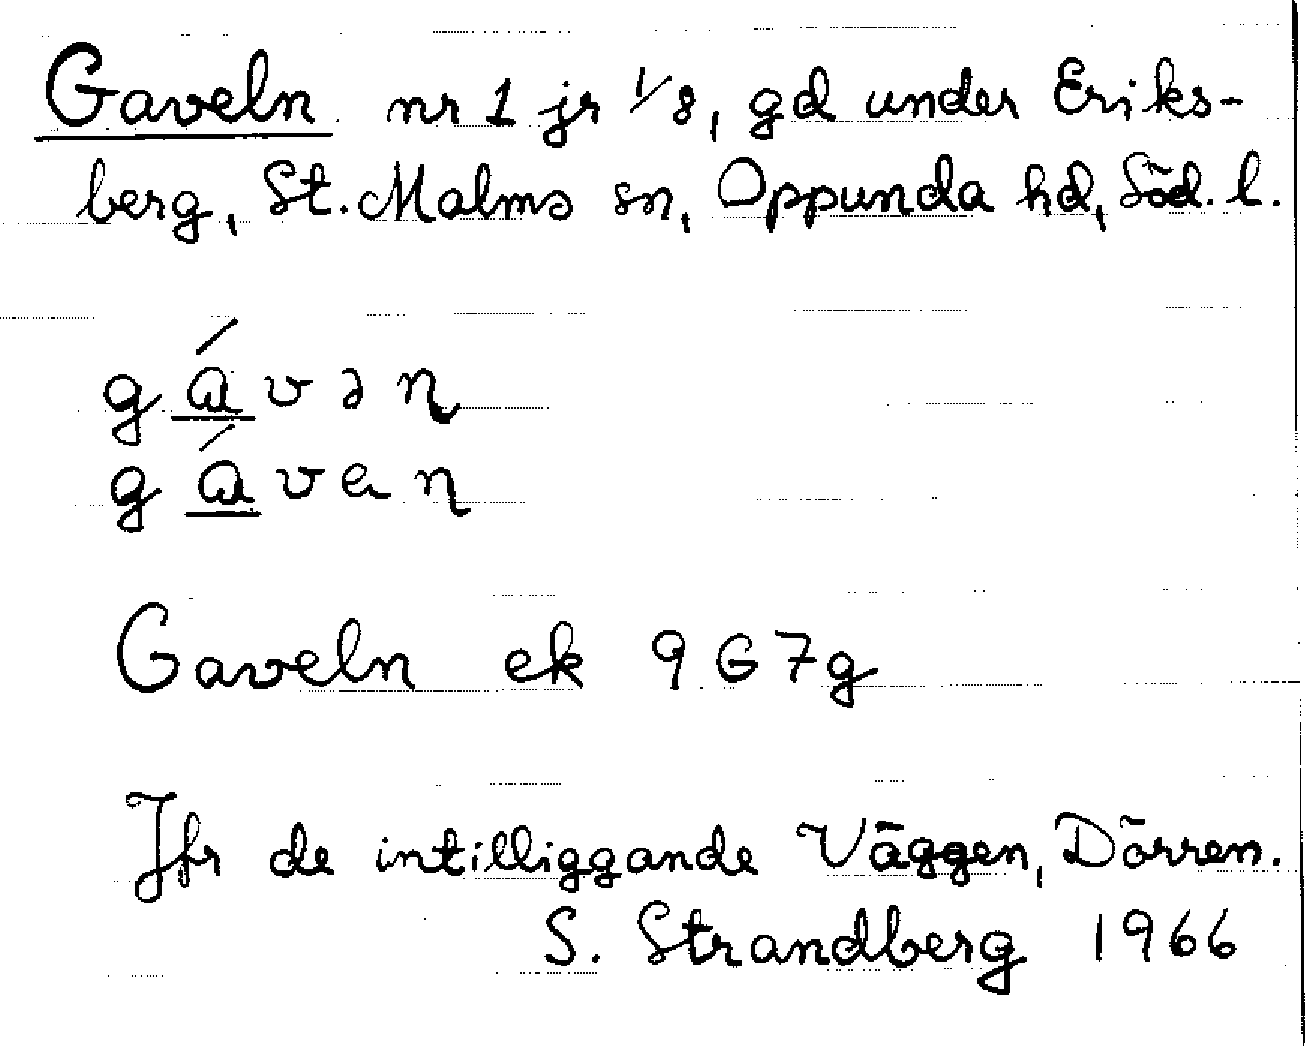 Gaveln nr 1 jr 1/8, gd under Eriks-
berg, St. Malms sn, Oppunda hd, Söd. l.
gávən
gávan
Gaveln ek 9G7g
Jfr de intilliggande Väggen, Dörren.
S. Strandberg 1966